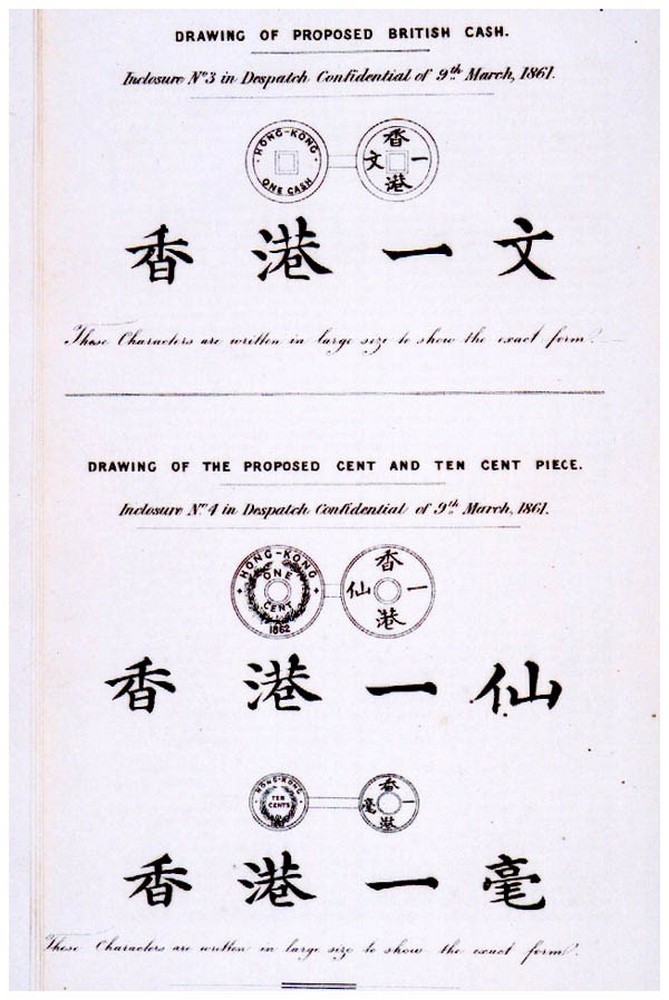 DRAWING OF PROPOSED BRITISH CASH.
Inclosure Nº3 in Despatch Confidential of 9th March, 1861.
·HONG-KONG·
ONE CASH
香
文 一
港
香港一文
These Characters are written in large size to show the exact form.
DRAWING OF THE PROPOSED CENT AND TEN CENT PIECE.
Inclosure Nº4 in Despatch Confidential of 9th March, 1861.
HONG-KONG
ONE
CENT
1862
香
仙 一
港
香港一仙
HONG-KONG
TEN
CENTS
香
毫 一
港
香港一毫
These Characters are written in large size to show the exact form.